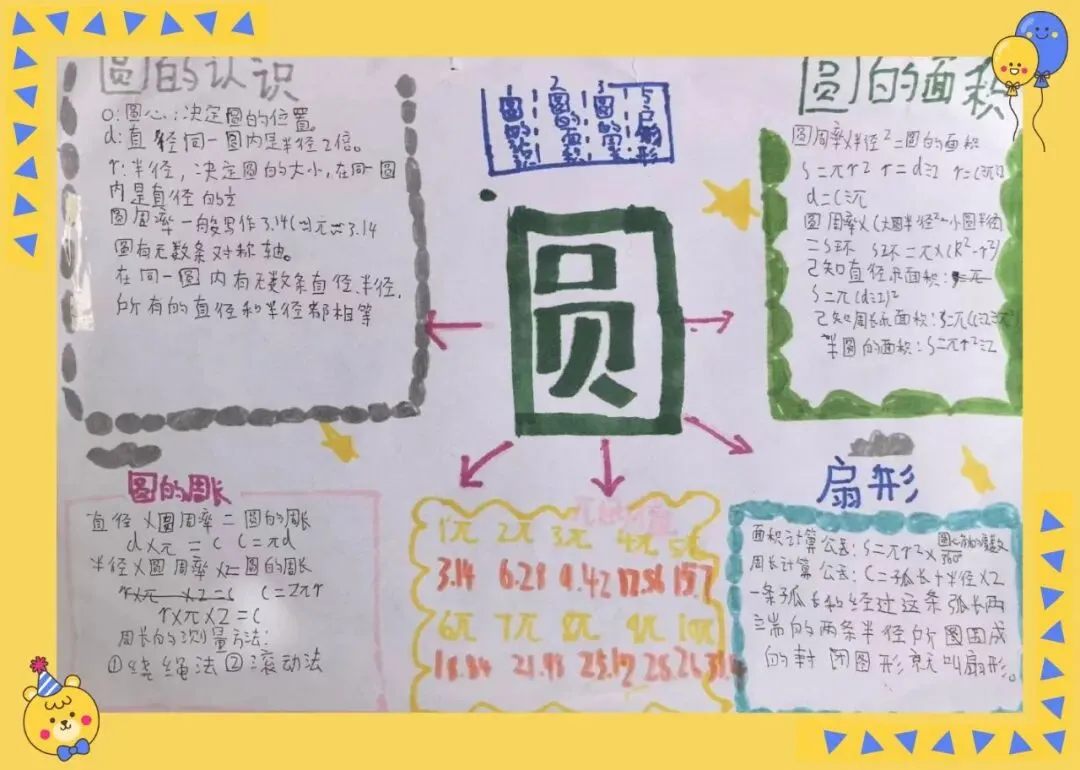 圆的认识
o:圆心:决定圆的位置
d:直径同一圆内是半径2倍。
r:半径,决定圆的大小,在同一圆
内是直径的
圆周率一般写作3.14(π)π≈3.14
圆有无数条对称轴。
在同一圆内有无数条直径、半径,
所有的直径和半径都相等
1 2 3 5
圆的认识
圆的面积
圆的周长
扇形
圆的面积
圆周率×半径²=圆的面积
S=πr² r=d÷2 r=C÷π÷2
d=C÷π
圆周率×(大圆半径²-小圆半径
=S环 S环=π×(R²-r²)
已知直径求面积:
S=π(d÷2)²
已知周长求面积:S=π(C÷2÷π
半圆的面积:S=πr²÷2
圆
圆的周长
直径×圆周率=圆的周长
d×π=C C=πd
半径×圆周率×2=圆的周长
r×π×2=C C=2πr
r×π×2=C
周长的测量方法:
①绕绳法②滚动法
1π 2π 3π 4π 5π
3.14 6.28 9.42 12.56 15.7
6π 7π 8π 9π 10π
18.84 21.98 25.12 28.26 31.4
扇形
面积计算公式:S=πr²×圆心角的度数/360°
周长计算公式:C=弧长+半径×2
一条弧长和经过这条弧长两
端的两条半径所围成
的封闭图形就叫扇形。